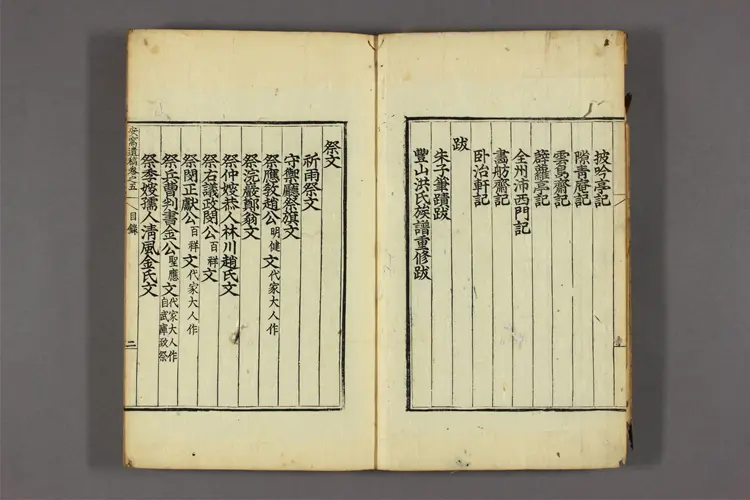 披吟亭記
隙青庵記
雲鳥齋記
薜蘿亭記
全州沛西門記
書舫齋記
卧治軒記
跋
朱子筆蹟跋
豐山洪氏族譜重修跋
祭文
祈雨祭文
守禦廳祭旗文
祭應敎趙公明健文代家大人作
祭浣巖鄭翁文
祭仲嫂恭人林川趙氏文
祭右議政閔公百祥文
祭閔正獻公百祥文代家大人作
祭兵曹判書金公聖應文代家大人作自武庫致祭
祭季嫂孺人淸風金氏文
安窩遺稿卷之五
目錄
二